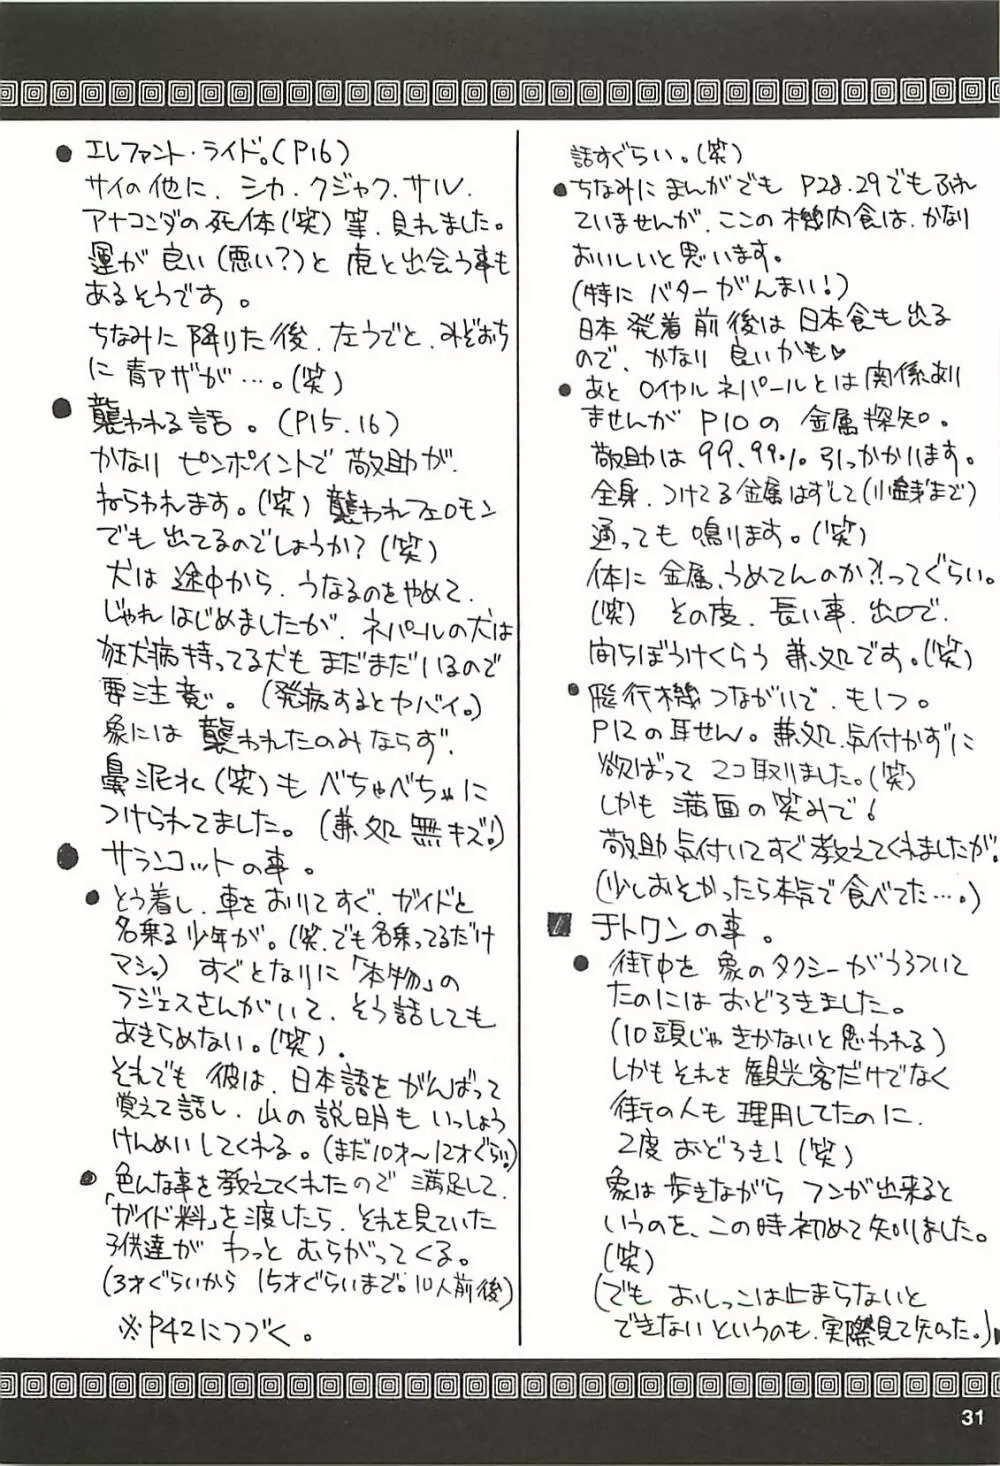 ● エレファント・ライド。(P16)
サイの他に、シカ、クジャク、サル、
アナコンダの死体(笑)等、見れました。
運が良い(悪い?)と虎と出会う事も
あるそうです。
ちなみに降りた後、左うでと、みぞおち
に青アザが…。(笑)
● 襲われる話。(P15.16)
かなりピンポイントで敬助が、
ねらわれます。(笑)襲われフェロモン
でも出てるのでしょうか?(笑)
犬は途中から、うなるのをやめて、
じゃれはじめましたが、ネパールの犬は
狂犬病持ってる犬もまだまだいるので
要注意。(発病するとヤバイ。)
象には襲われたのみならず、
鼻泥水(笑)もべちゃべちゃに
つけられてました。(兼処無キズ!)
● サランコットの事。
● とう着し、車をおりてすぐ、ガイドと
名乗る少年が。(笑、でも名乗ってるだけ
マシ。)すぐとなりに「本物」の
ラジェスさんがいて、そう話しても
あきらめない。(笑)、
それでも彼は、日本語をがんばって
覚えて話し、山の説明もいっしょう
けんめいしてくれる。(まだ10才〜12才ぐらい)
● 色んな事を教えてくれたので満足して、
「ガイド料」を渡したら、それを見ていた
子供達がわっとむらがってくる。
(3才ぐらいから15才ぐらいまで。10人前後)
※P42につづく。
話すぐらい。(笑)
● ちなみにまんがでもP28.29でもふれ
ていませんが、ここの機内食は、かなり
おいしいと思います。
(特にバターがんまい!)
日本発着前後は日本食も出る
ので、かなり良いかも♥
● あとロイヤルネパールとは関係あり
ませんがP10の金属探知。
敬助は99.99%引っかかります。
全身、つけてる金属はずして(小銭まで)
通っても鳴ります。(笑)
体に金属、うめてんのか?!ってぐらい。
(笑)その度、長い事、出口で、
待ちぼうけくらう兼処です。(笑)
● 飛行機つながりで、もⅠつ。
P12の耳せん。兼処、気付かずに
欲ばって2コ取りました。(笑)
しかも満面の笑みで!
敬助気付いてすぐ教えてくれましたが、
(少しおそかったら本気で食べてた…。)
■ チトワンの事。
● 街中を象のタクシーがうろついて
たのにはおどろきました。
(10頭じゃきかないと思われる)
しかもそれを観光客だけでなく
街の人も理用してたのに、
2度おどろき!(笑)
象は歩きながらフンが出来ると
いうのを、この時初めて知りました。
(笑)
(でもおしっこは止まらないと
できないというのも、実際見て知った。)
31